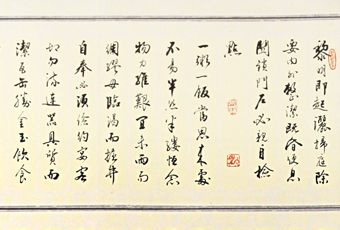 黎明即起灑掃庭除
要內外整潔既昏便息
關鎖門戶必親自檢
點
一粥一飯當思來處
不易半絲半縷恒念
物力維艱宜未雨而
綢繆毋臨渴而掘井
自奉必須儉約宴客
切勿流連器具質而
潔瓦缶勝金玉飲食